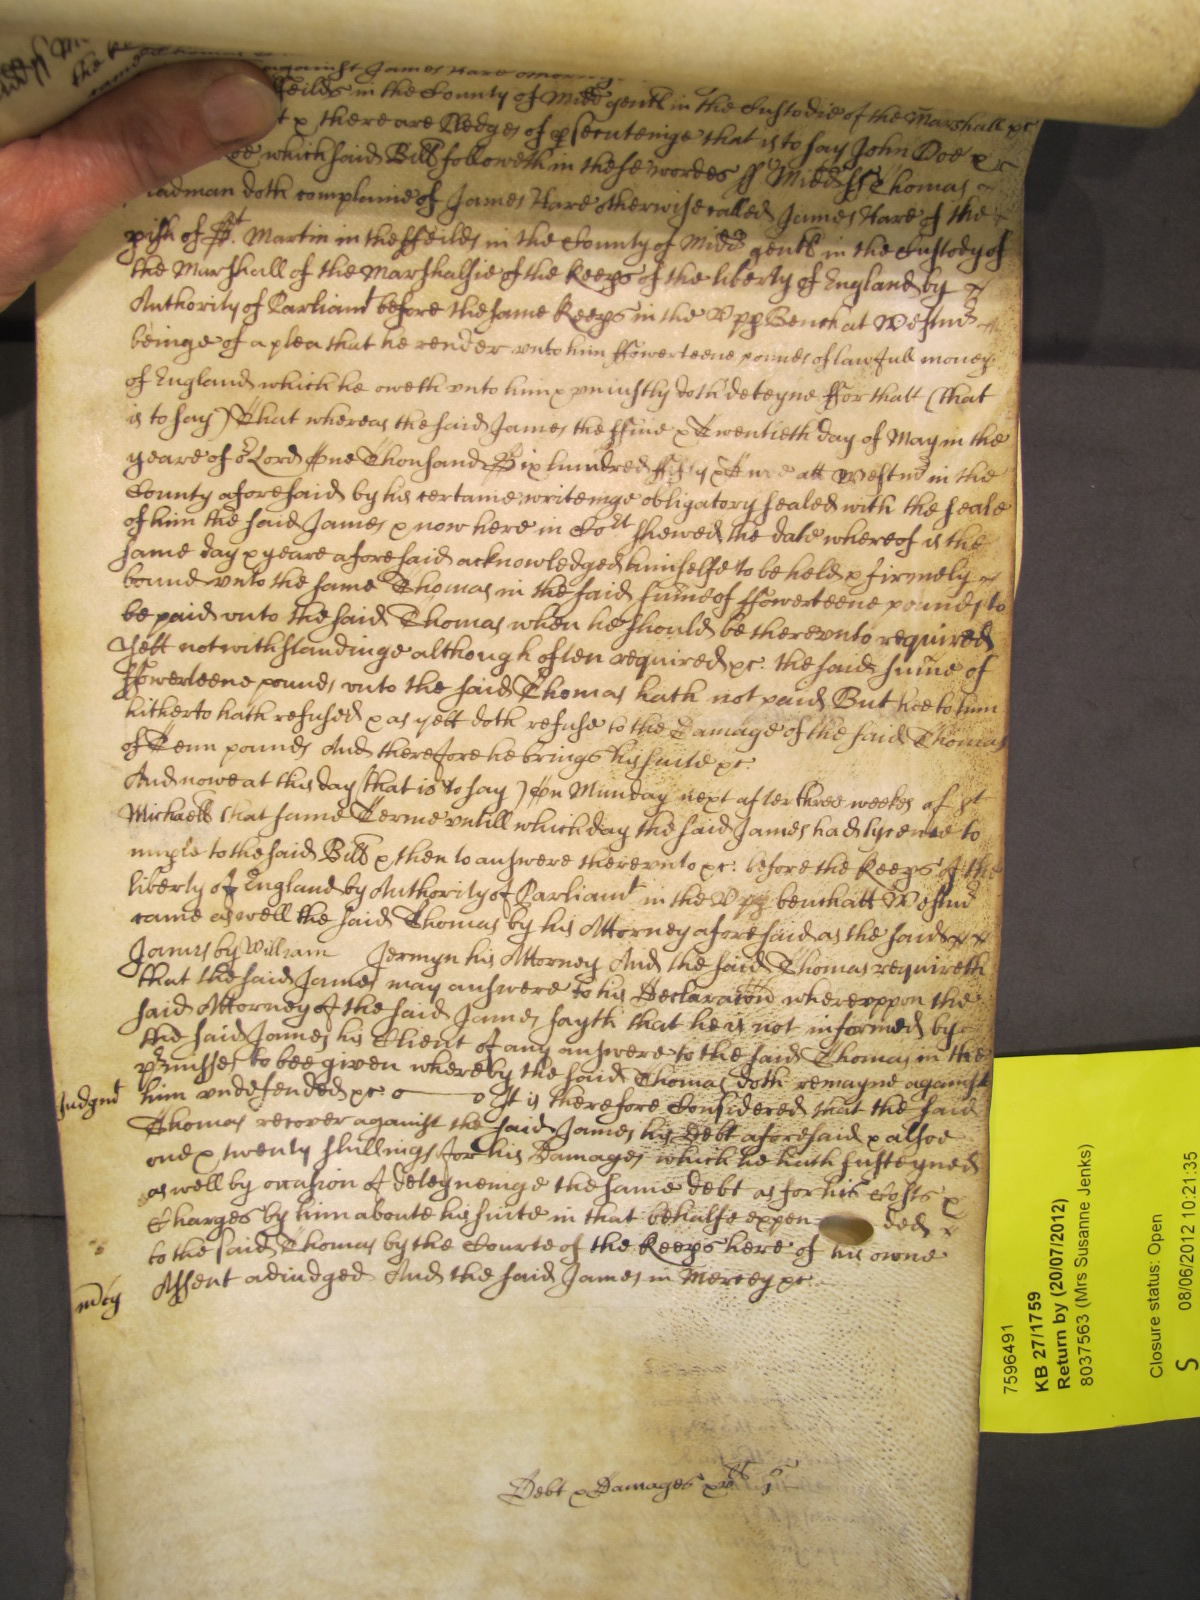 against James Hare
ffeilds in the County of Midd gentl in the Custodie of the Marshall &c
& there are Pledges of psecuteinge that is to say John Doe &
Roe which said Bill followeth in these wordes ss Midd ss Thomas
doth complaine of James Hare otherwise called James Hare of the
pish of St. Martin in the ffeilds in the County of Midd gentl in the Custody of
the Marshall of the Marshalsie of the Keeps of the liberty of England by
Authority of Parliamt before the same Keeps in the Vpp Bench at Westmr
beinge of a plea that he render vnto him ffowerteene pounds of lawfull money
of England which he oweth vnto him & vniustly doth deteyne ffor thatt (that
is to say) That whereas the said James the ffive & Twentieth day of May in the
yeare of or Lord One Thousand Six hundred ffifty & att Westmr in the
County aforesaid by his certaine writeinge obligatory sealed with the seale
of him the said James & now here in Cort shewed the date whereof is the
same day & yeare aforesaid acknowledged himselfe to be held & firmely
bound vnto the same Thomas in the said sume of ffowerteene pounds to
be paid vnto the said Thomas when he should be therevnto required
Yett notwithstandinge although often required &c. the said sume of
ffowerteene pounds vnto the said Thomas hath not paid But hee to him
hitherto hath refused & as yett doth refuse to the Damage of the said Thomas
of Tenn pounds And therefore he brings his suite &c.
And nowe at this day (that is to say) On Munday next after three weekes of St
Michaell that same Terme vntill which day the said James had lycence to
imple to the said Bill & then to answere therevnto &c. before the Keeps of the
liberty of England by Authority of Parliamt in the Vpp bench att Westmr
came aswell the said Thomas by his Attorney aforesaid as the said
James by William Jermyn his Attorney And the said Thomas requireth
that the said James may answere to his Declaracon wherevppon the
said Attorney of the said James sayth that he is not informed by
the said James his Client of any answere to the said Thomas in the
pmisses to bee given whereby the said Thomas doth remayne against
Judgmt him vndefended &c. It is therefore Considered that the said
Thomas recover against the said James his Debt aforesaid & alsoe
one & twenty shillings for his Damages which he hath susteyned
as well by occasion of deteyneinge the same debt as for his Costs &
Charges by him aboute his suite in that behalfe expen ded
to the said Thomas by the Courte of the Keeps here of his owne
mcy Assent adiudged And the said James in Mercey &c.
Debt & Damages
7596491
KB 27/1759
Return by (20/07/2012)
8037563 (Mrs Susanne Jenks)
Closure status: Open
S 08/06/2012 10:21:35